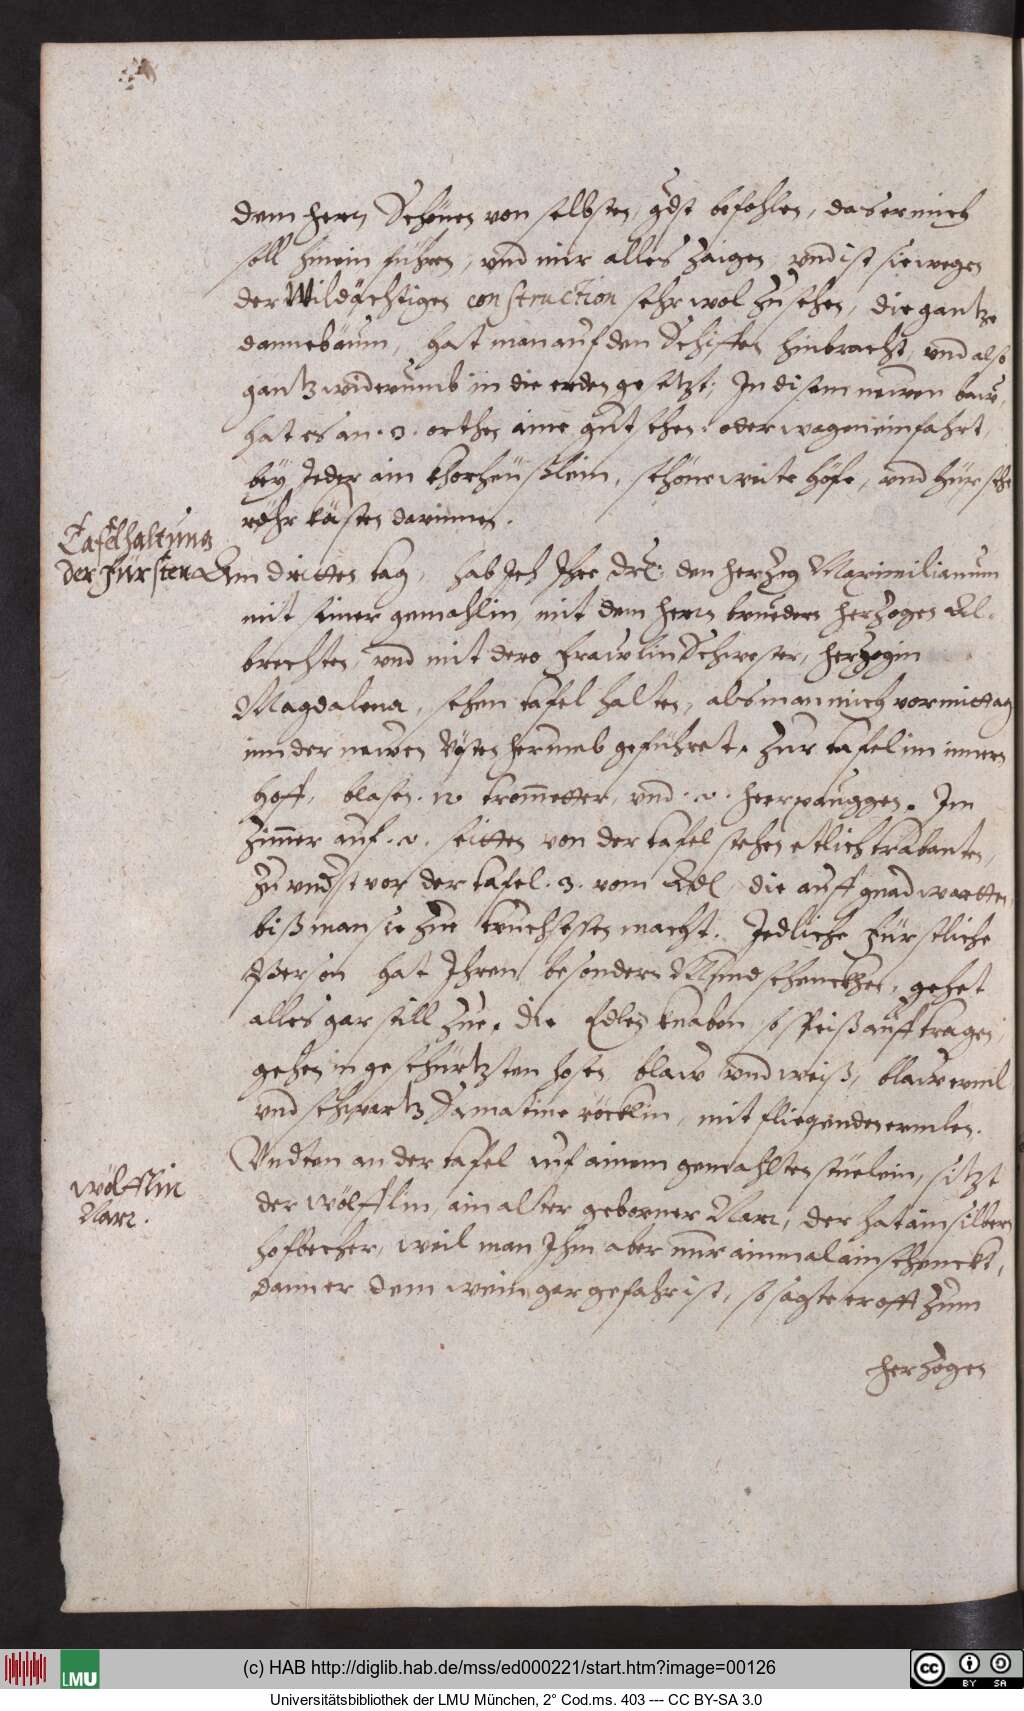 dem herrn Schönen von selbsten, gdst befohlen, das er mich
soll hinein führen, und mir alles zaigen, und ist sie wegen
der Wildächtigen construction sehr wol zu sehen, die gantze
dannebäum, hat man auf den Schiffen hinbracht, und also
gantz widerumb in die erden gesetzt; In disem newen baw,
hat es an . 3. orthen aine gutschen: oder wagen einfahrt,
bey Jeder ain thorheüßlein, schöne weite höfe, und hüpsche
röhr kästen darinnen.
Tafelhaltung
der Fürsten
Am dritten tag, hab Ich Ihre Drt: den herzog Maximilianum
mit seiner gemahlin mit dem herrn bruedern herzogen Al-
brechten, und mit dero Frawlin Schwester, herzogin
Magdalena, sehen tafel halten, als man mich vormittag
inn der newen Vösten herumb geführet. Zur tafel im innern
hoff, blasen . 12. trometter, und . 2. heerpauggen. Im
Zimmer auf . 2. seitten von der tafel stehen etlich trabanten,
zu undst vor der tafel . 3. vom Adl, die auff gnad wartten,
biß man sie zue truchsessen macht. Jedliche Fürstliche
Person hat Ihren besondern Mundschenckhen, gehet
alles gar still zue. die Edlen knaben so speiß auff tragen,
gehen in geschürtzten hosen, blaw und weiß, blaw ermel
und schwartz Damatine röcklin, mit fliegenden ermlen.
wölfflin
Narr.
Undten an der tafel auf ainem gemahlten stüelein, sitzt
der wölfflin, ain alter geborner Narr, der hat ain silbern
hofbecher, weil man Ihm aber nur ainmal ainschenckt,
dann er dem wein gar gefahr ist, so sagte er offt zum
herzogen
(c) HAB http://diglib.hab.de/mss/ed000221/start.htm?image=00126
LMU
cc BY SA
Universitätsbibliothek der LMU München, 2° Cod.ms. 403 --- CC BY-SA 3.0